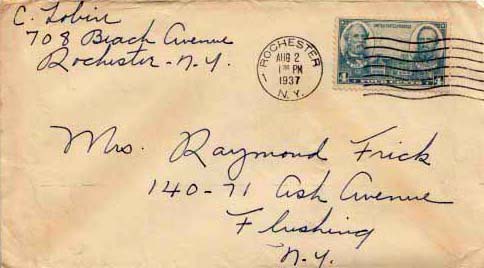 C. Lobin
708 Beach Avenue
Rochester - N.Y.
ROCHESTER
AUG 2
1 PM
1937
N.Y.
UNITED STATES POSTAGE
4 4
Mrs. Raymond Frick
140-71 Ash Avenue
Flushing
N.Y.